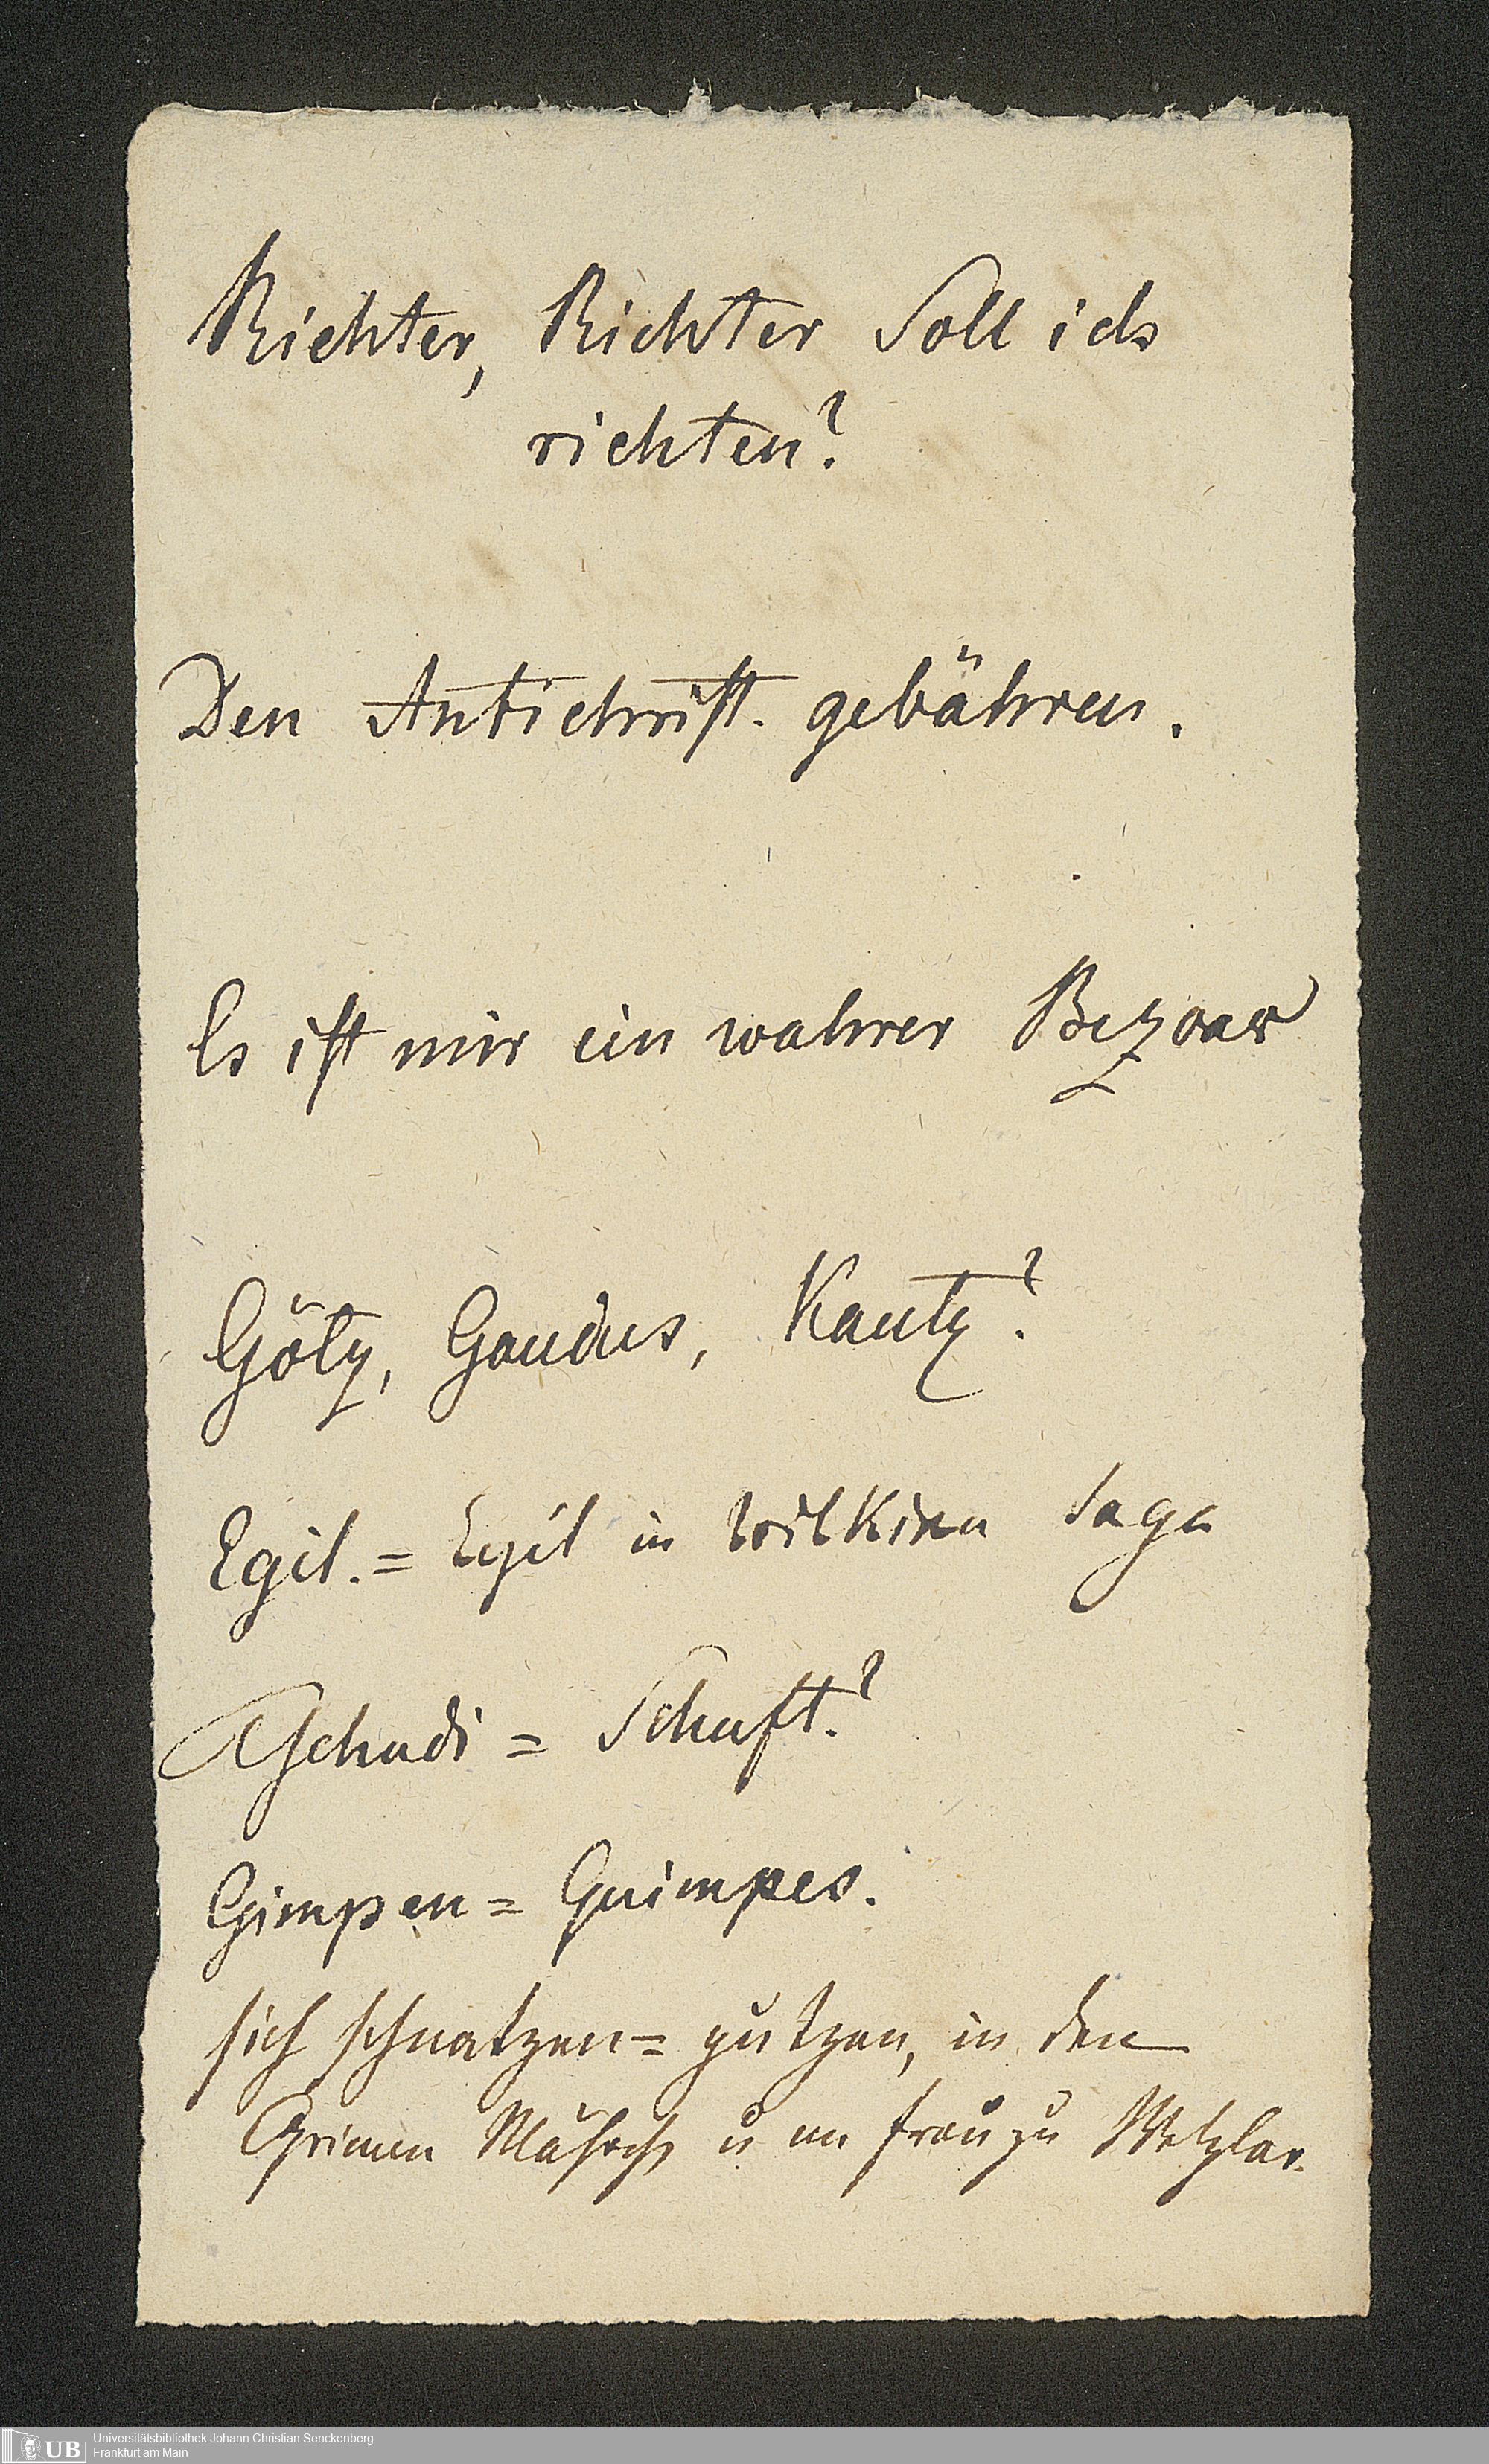 Richter, Richter soll ich
richten?
Den Antichrist. gebähren.
Es ist mir ein wahrer Bezoar
Götz, Gaudus, Kautz?
Egil. = Egil in Wilkina Saga
Tschudi = Schuft?
Gimpen = Guimpes.
sich schnatzen = putzen, in den
Grimm Mährch u un frau zu Wetzlar.
UB
Universitätsbibliothek Johann Christian Senckenberg
Frankfurt am Main